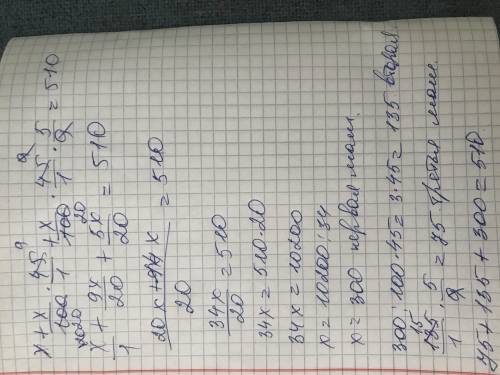 x + x/100 · 45/1 + x/100 · 45/1 · 5/9 = 510
x/1 + 9x/20 + 5x/20 = 510
20x + 14x / 20 = 510
34x/20 = 510
34x = 510 · 20
34x = 10200
x = 10200 : 34
x = 300 первая мот.
300 : 100 · 45 = 3 · 45 = 135 вторая
135/1 · 5/9 = 75 третья мот.
75 + 135 + 300 = 510